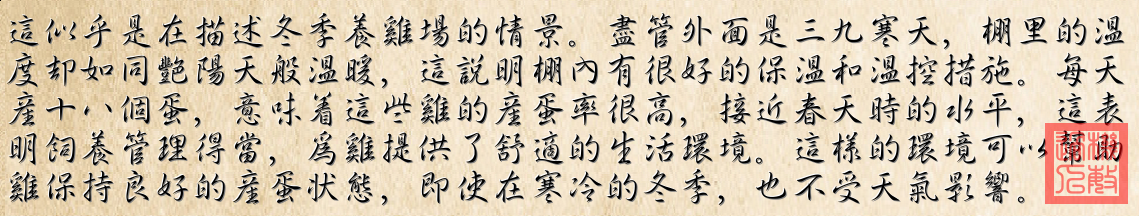 這似乎是在描述冬季養雞場的情景。盡管外面是三九寒天，棚里的溫
度却如同艷陽天般溫暖，這說明棚內有很好的保溫和溫控措施。每天
産十八個蛋，意味着這些雞的産蛋率很高，接近春天時的水平，這表
明飼養管理得當，爲雞提供了舒適的生活環境。這樣的環境可以幫助
雞保持良好的産蛋狀態，即使在寒冷的冬季，也不受天氣影響。